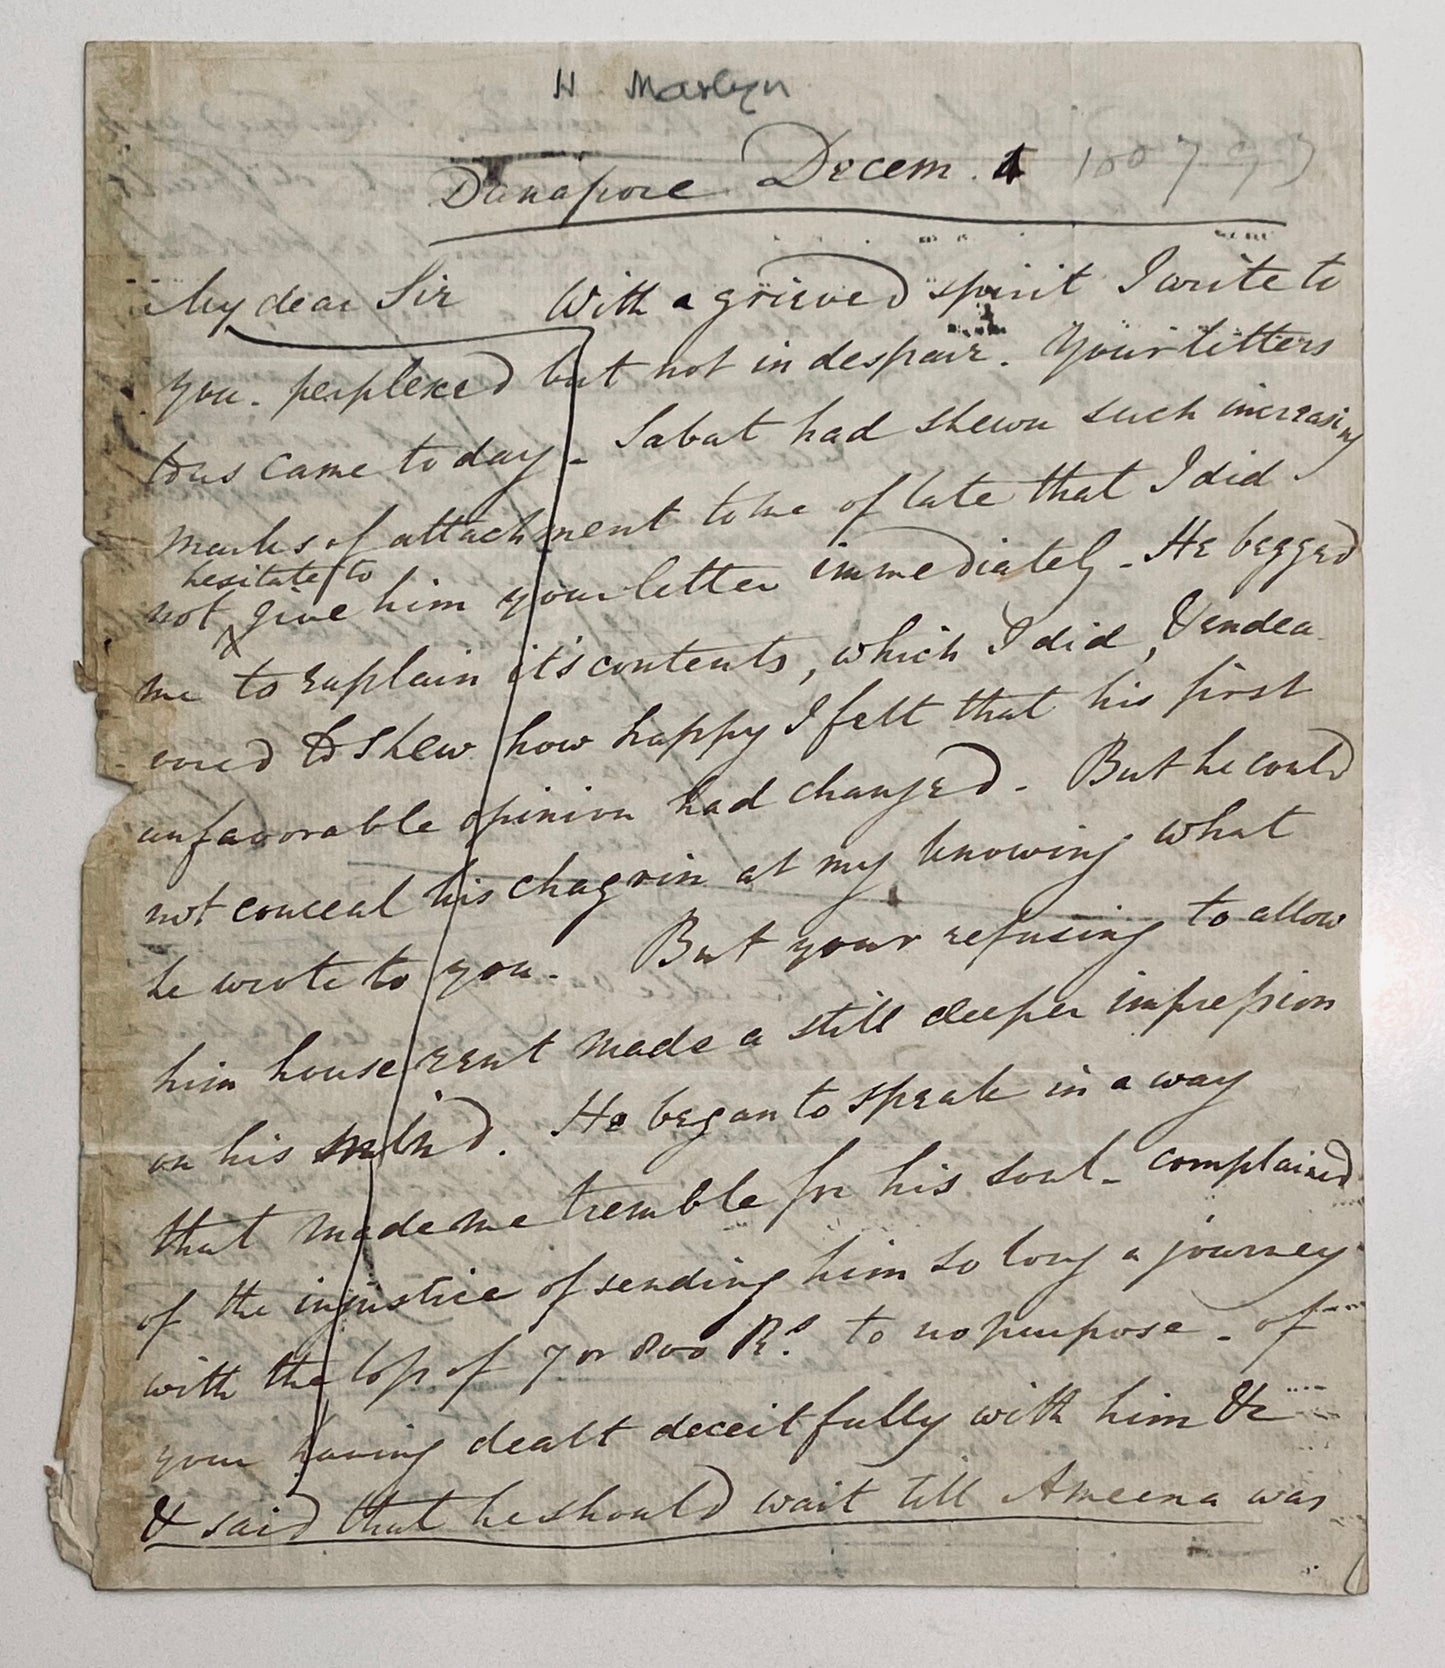 H. Martyn
Dinapore Decem. 1 1807
My dear Sir With a grieved spirit I write to
you. perplexed but not in despair. Your letters
to us came to day - Sabat had shewn such increasing
marks of attachment to me of late that I did
hesitate to
not give him your letter immediately - He begged
me to explain it's contents, which I did, & endea
vored to shew how happy I felt that his first
unfavorable opinion had changed. But he could
not conceal his chagrin at my knowing what
he wrote to you. But your refusing to allow
him house rent made a still deeper impression
on his mind. He began to speak in a way
that made me tremble for his soul - complained
of the injustice of sending him so long a journey
with the loss of 7 or 800 Rs. to no purpose - of
your having dealt deceitfully with him &c
& said that he should wait till Ameena was